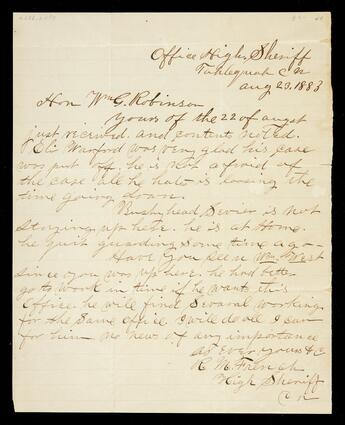 Office High Sheriff
Tahlequah C N
aug 23. 1883
Hon Wm G. Robinson
Yours of the 22 of august
just received. and content noted.
E C Warford was very glad his case
was put off he is not afraid of
the case all he hate is loosing the
time going down.
Bushyhead Sevier is not
staying up here. he is at Home.
he quit guarding some time ago
Have you seen Wm West
since you was up here. he had better
go to work in time if he wants this
Office. he will find Several working
for the same office. I will do all I can
for him no news of any importance
as ever yours &c
R. M. French
High Sheriff
C N